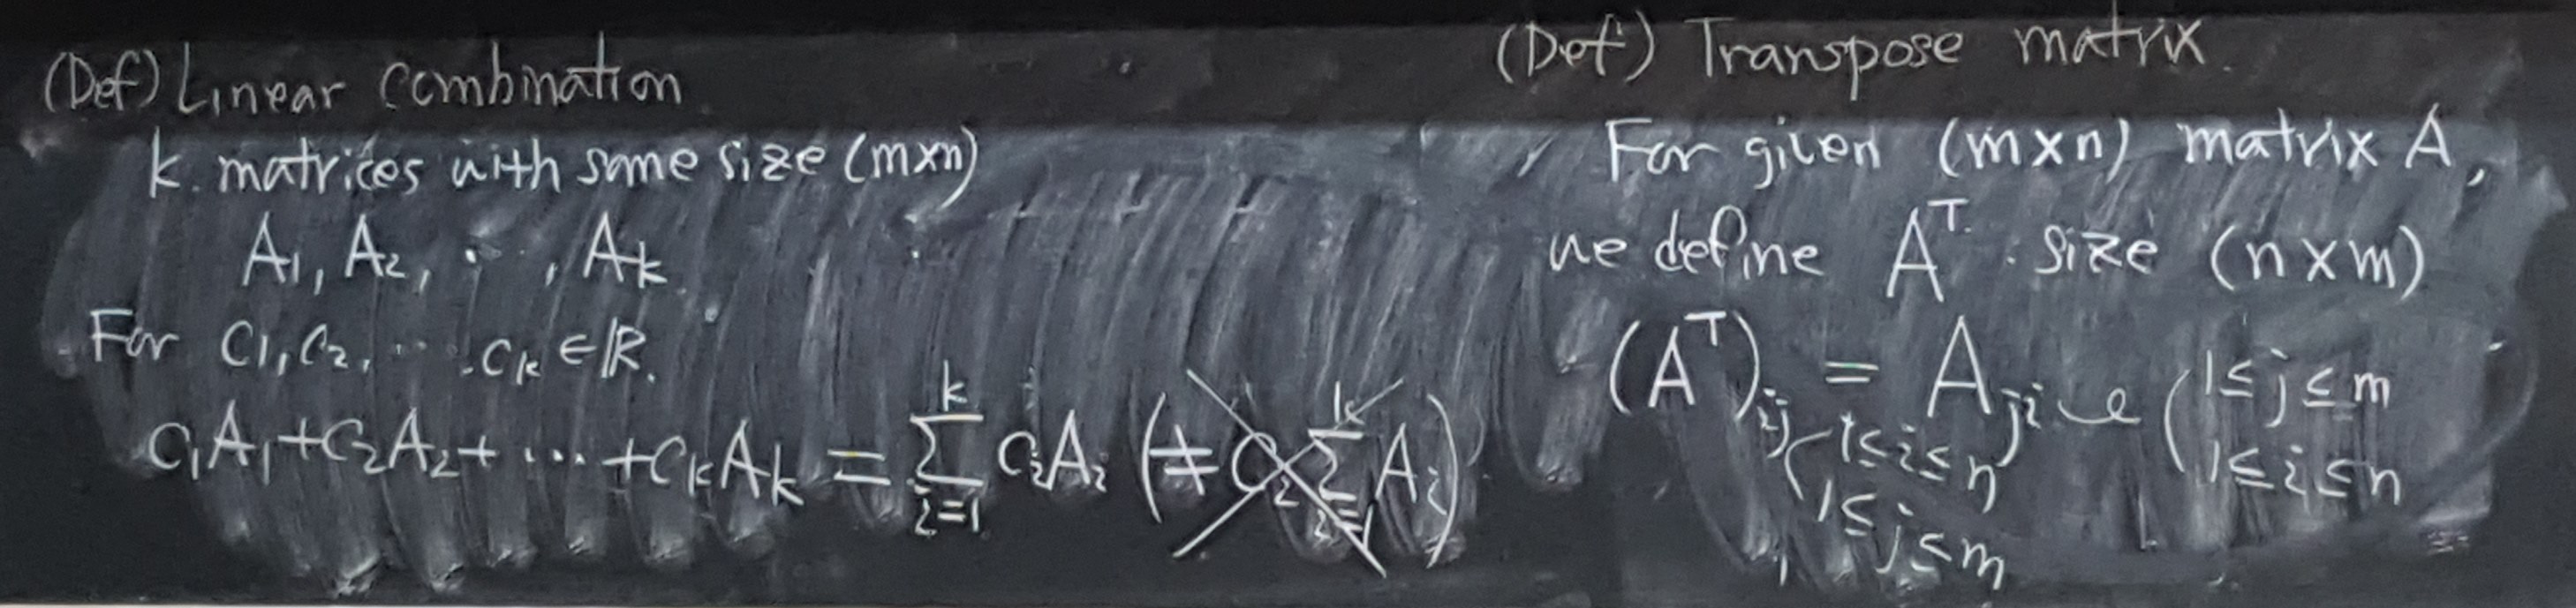 (Def) Linear Combination
k. matrices with same size (m×n)
A₁, A₂, ⋯, Aₖ
For C₁, C₂, ⋯ Cₖ ∈ ℝ.
C₁A₁+C₂A₂+ ⋯ +CₖAₖ = ∑ᵢ₌₁ᵏ CᵢAᵢ (≠ Cᵢ ∑ᵢ₌₁ᵏ Aᵢ)
(Def) Transpose matrix.
For given (m×n) matrix A,
we define Aᵀ. size (n×m)
(Aᵀ)ᵢⱼ = Aⱼᵢ
(1≤i≤n
1≤j≤m
(1≤j≤m
1≤i≤n